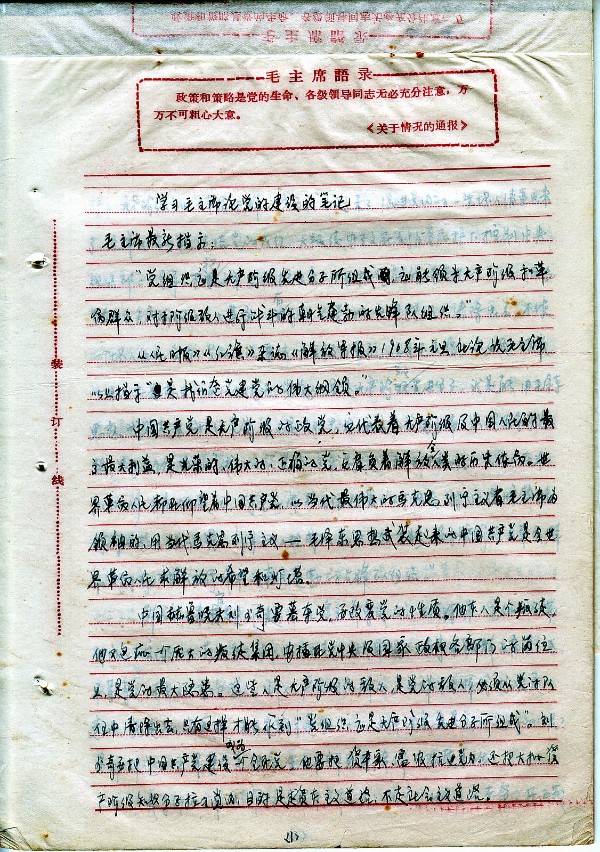 毛主席語录
政策和策略是党的生命、各级领导同志无必充分注意，万
万不可粗心大意。
《关于情况的通报》
学习毛主席论党的建设的笔记
毛主席最新指示：
"党组织应是无产阶级先进分子所组成，应能领导无产阶级和革
命群众，对于阶级敌人进行战斗的朝气蓬勃的先锋队组织。"
《人民日报》《红旗》杂志《解放军报》1968年元旦社论说毛主席
指示"是我们整党建党的伟大纲领。"
中国共产党是无产阶级的政党，它代表着无产阶级及中国人民的最
大利益，是光荣的、伟大的、正确的党，它肩负着解放全人类的历史使命。世
界革命人民都在仰望着中国共产党，以当代最伟大的马克思列宁主义者毛主席为
领袖的，用当代马克思列宁主义——毛泽东思想武装起来的中国共产党是全世
界革命人民求解放的希望和灯塔。
中国赫鲁晓夫刘少奇要篡夺党，要改变党的性质。他本人是个叛徒，
他又包庇一个庞大的叛徒集团，安插在党中央及国家政权各部门的岗位
上是党的最大隐患。这些人是无产阶级的敌人是党的敌人，必须从党的队
伍中清除出去，只有这样才能做到"党组织应是无产阶级先进分子所组成"。刘
少奇妄想把中国共产党建设成为一个全民党
产阶级知识分子拉入党内，目的是走资本主义道路，不走社会主义道路。
装
订
线
(1)